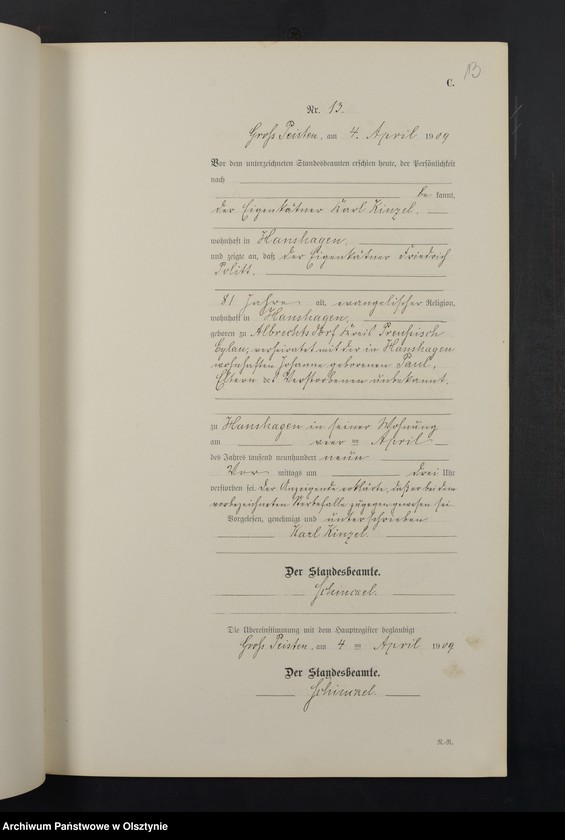 13
C.
Nr. 13.
Groß Peisten, am 4. April 1909
Vor dem unterzeichneten Standesbeamten erschien heute, der Persönlichkeit
nach
be kannt,
der Eigenkätner Karl Kinzel.
wohnhaft in Hanshagen,
und zeigte an, daß der Eigenkätner Friedrich
Politt.
81 Jahre alt, evangelischer Religion,
wohnhaft in Hanshagen,
geboren zu Albrechtsdorf Kreis Preußisch
Eylau, verheiratet mit der in Hanshagen
wohnhaften Johanne geborenen Paul.
Eltern des Verstorbenen unbekannt.
zu Hanshagen in seiner Wohnung
am vier ten April
des Jahres tausend neunhundert neun
Vor mittags um drei Uhr
verstorben sei. Der Anzeigende erklärte, daß er bei dem
vorbezeichneten Sterbefalle zugegen gewesen sei
Vorgelesen, genehmigt und unterschrieben
Karl Kinzel.
Der Standesbeamte.
Schimkel.
Die Übereinstimmung mit dem Hauptregister beglaubigt
Groß Peisten, am 4 ten April 1909
Der Standesbeamte.
Schimkel.
R.-R.
Archiwum Państwowe w Olsztynie